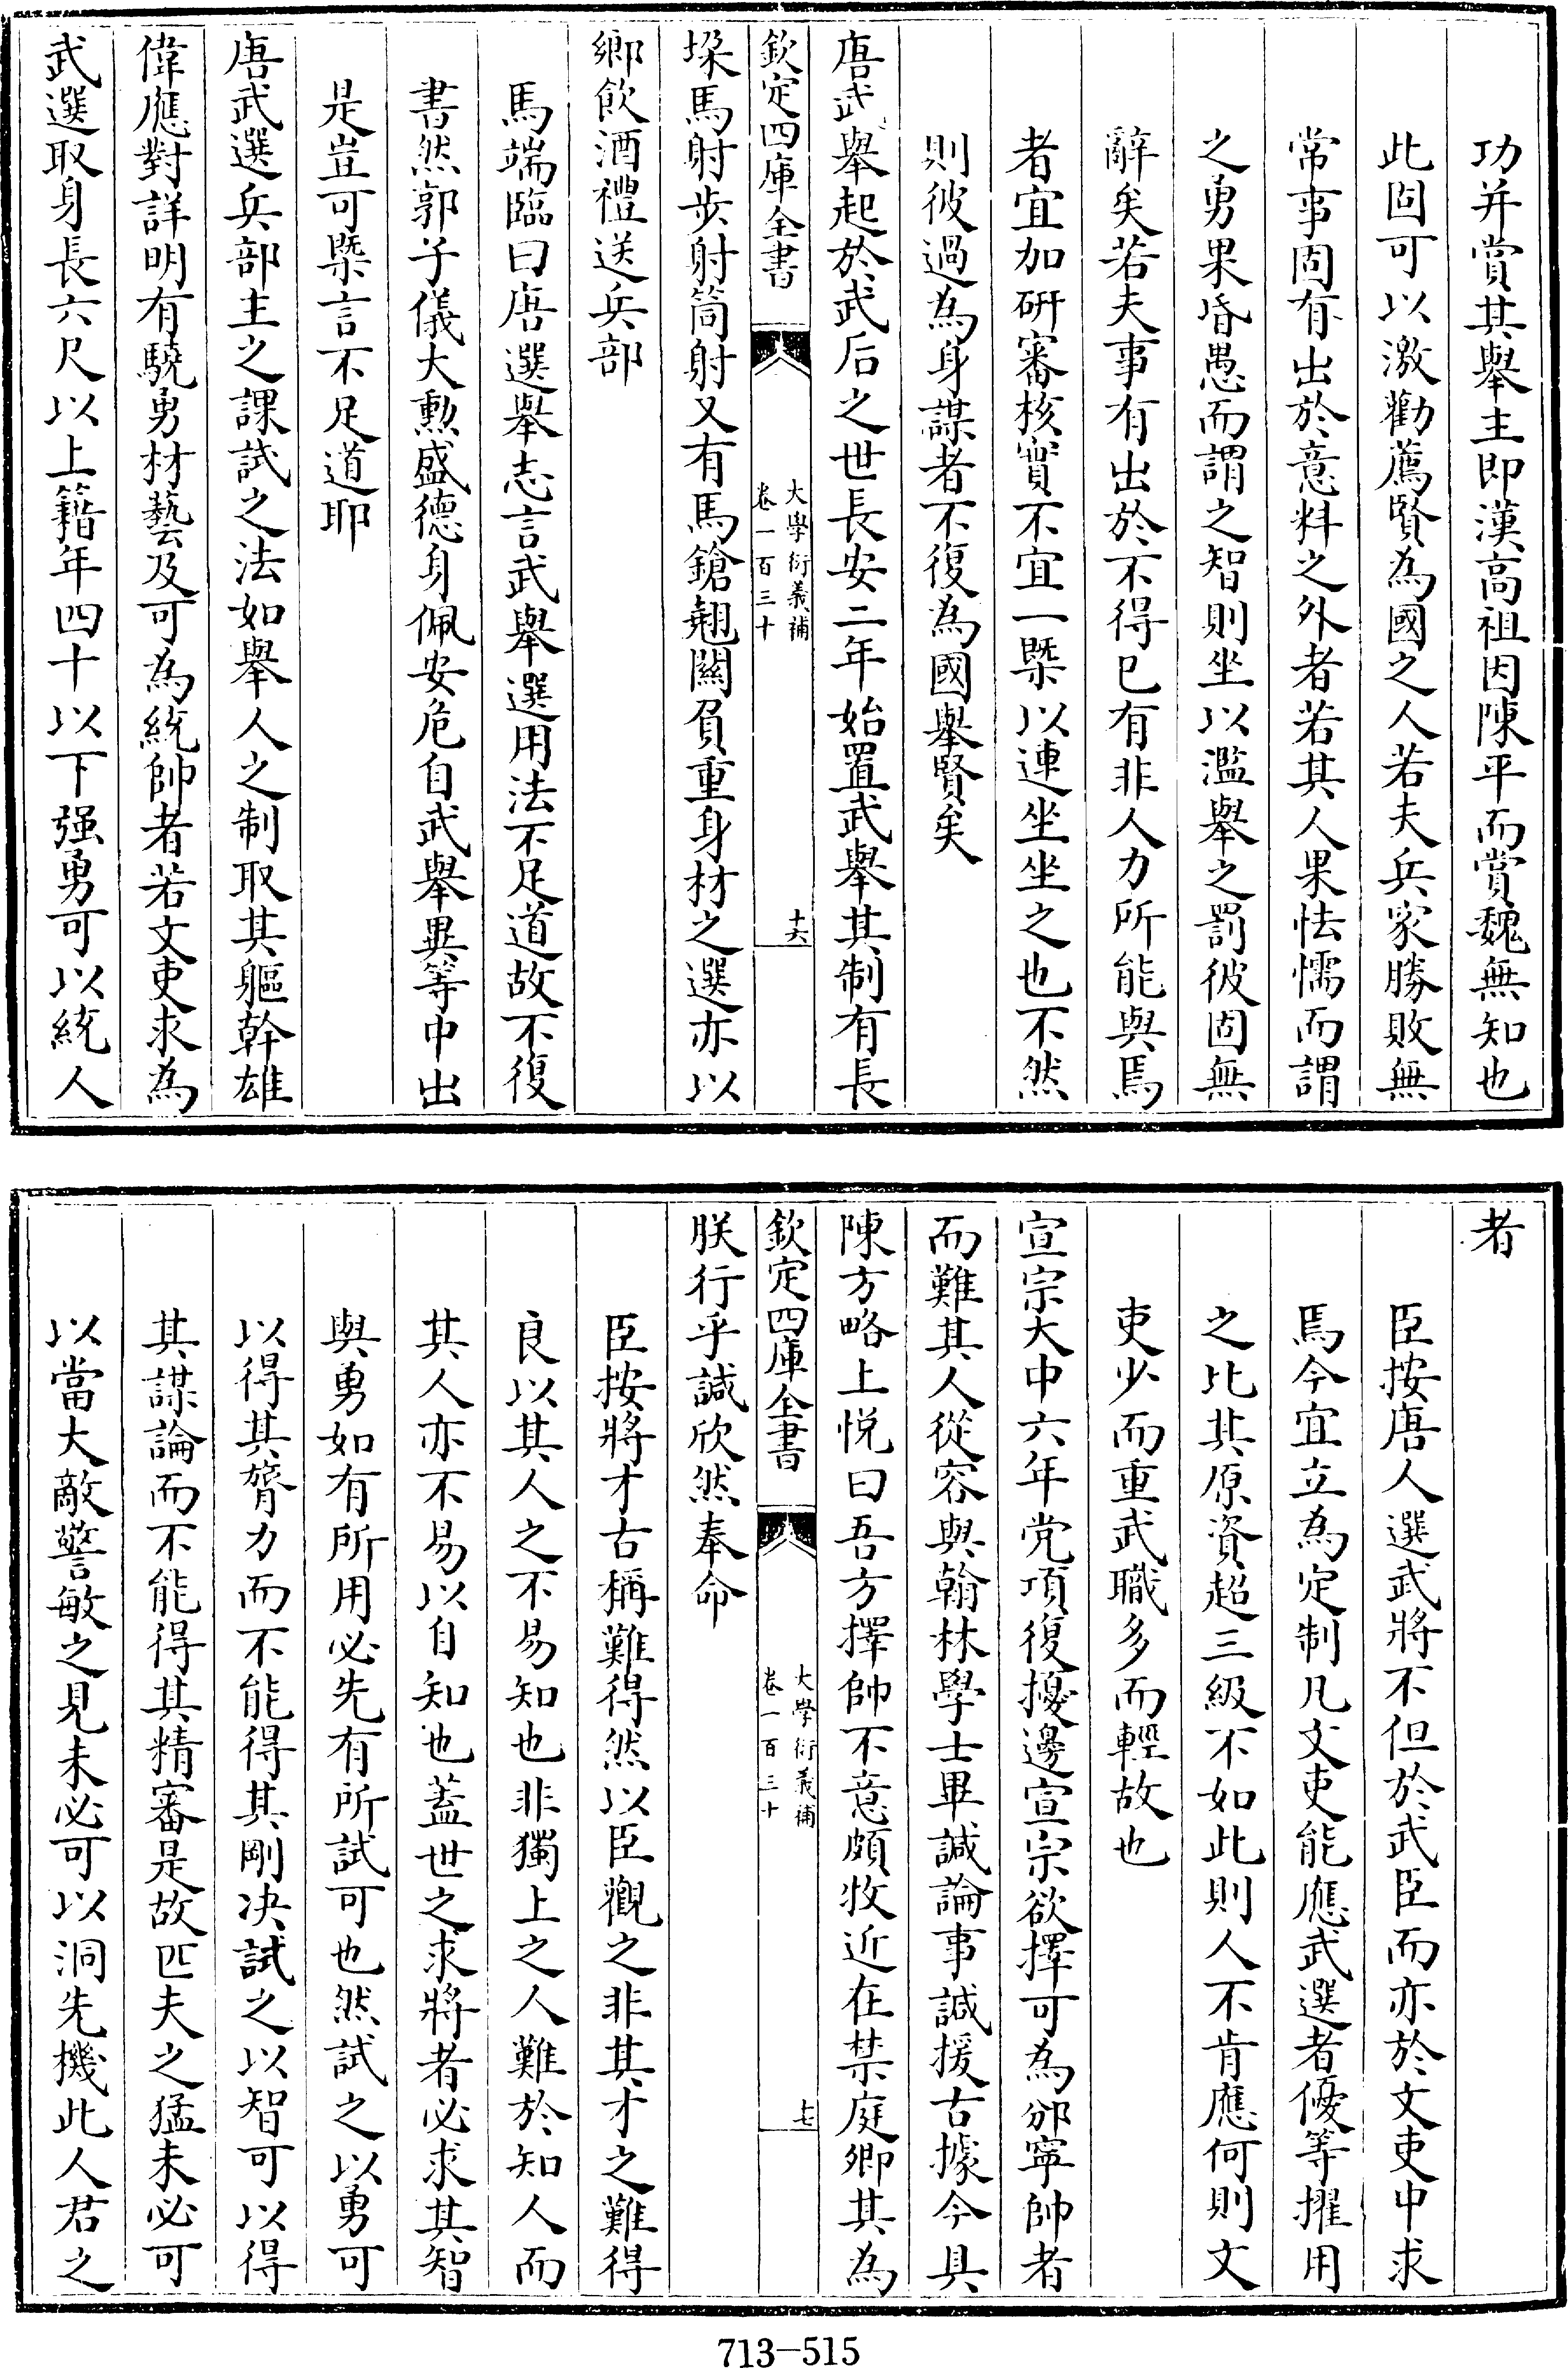 功并賞其舉主即漢高祖因陳平而賞魏無知也
此固可以激勸薦賢為國之人若夫兵家勝敗無
常事固有出於意料之外者若其人果怯懦而謂
之勇果昏愚而謂之智則坐以濫舉之罰彼固無
辭矣若夫事有出於不得已有非人力所能與焉
者宜加研審核實不宜一槩以連坐坐之也不然
則彼過為身謀者不復為國舉賢矣
唐武舉起於武后之世長安二年始置武舉其制有長
欽定四庫全書
大學衍義補
卷一百三十
十六
垜馬射步射筒射又有馬鎗翹關負重身材之選亦以
鄉飲酒禮送兵部
馬端臨曰唐選舉志言武舉選用法不足道故不復
書然郭子儀大勲盛德身佩安危自武舉異等中出
是豈可槩言不足道耶
唐武選兵部主之課試之法如舉人之制取其軀幹雄
偉應對詳明有驍勇材藝及可為統帥者若文吏求為
武選取身長六尺以上籍年四十以下强勇可以統人
者
臣按唐人選武將不但於武臣而亦於文吏中求
焉今宜立為定制凡文吏能應武選者優等擢用
之比其原資超三級不如此則人不肯應何則文
吏少而重武職多而輕故也
宣宗大中六年党項復擾邊宣宗欲擇可為邠寧帥者
而難其人從容與翰林學士畢諴論事諴援古據今具
陳方略上悅曰吾方擇帥不意頗牧近在禁庭卿其為
欽定四庫全書
大學衍義補
卷一百三十
十七
朕行乎諴欣然奉命
臣按將才古稱難得然以臣觀之非其才之難得
良以其人之不易知也非獨上之人難於知人而
其人亦不易以自知也蓋世之求將者必求其智
與勇如有所用必先有所試可也然試之以勇可
以得其膂力而不能得其剛决試之以智可以得
其謀論而不能得其精審是故匹夫之猛未必可
以當大敵警敏之見未必可以洞先機此人君之
713-515